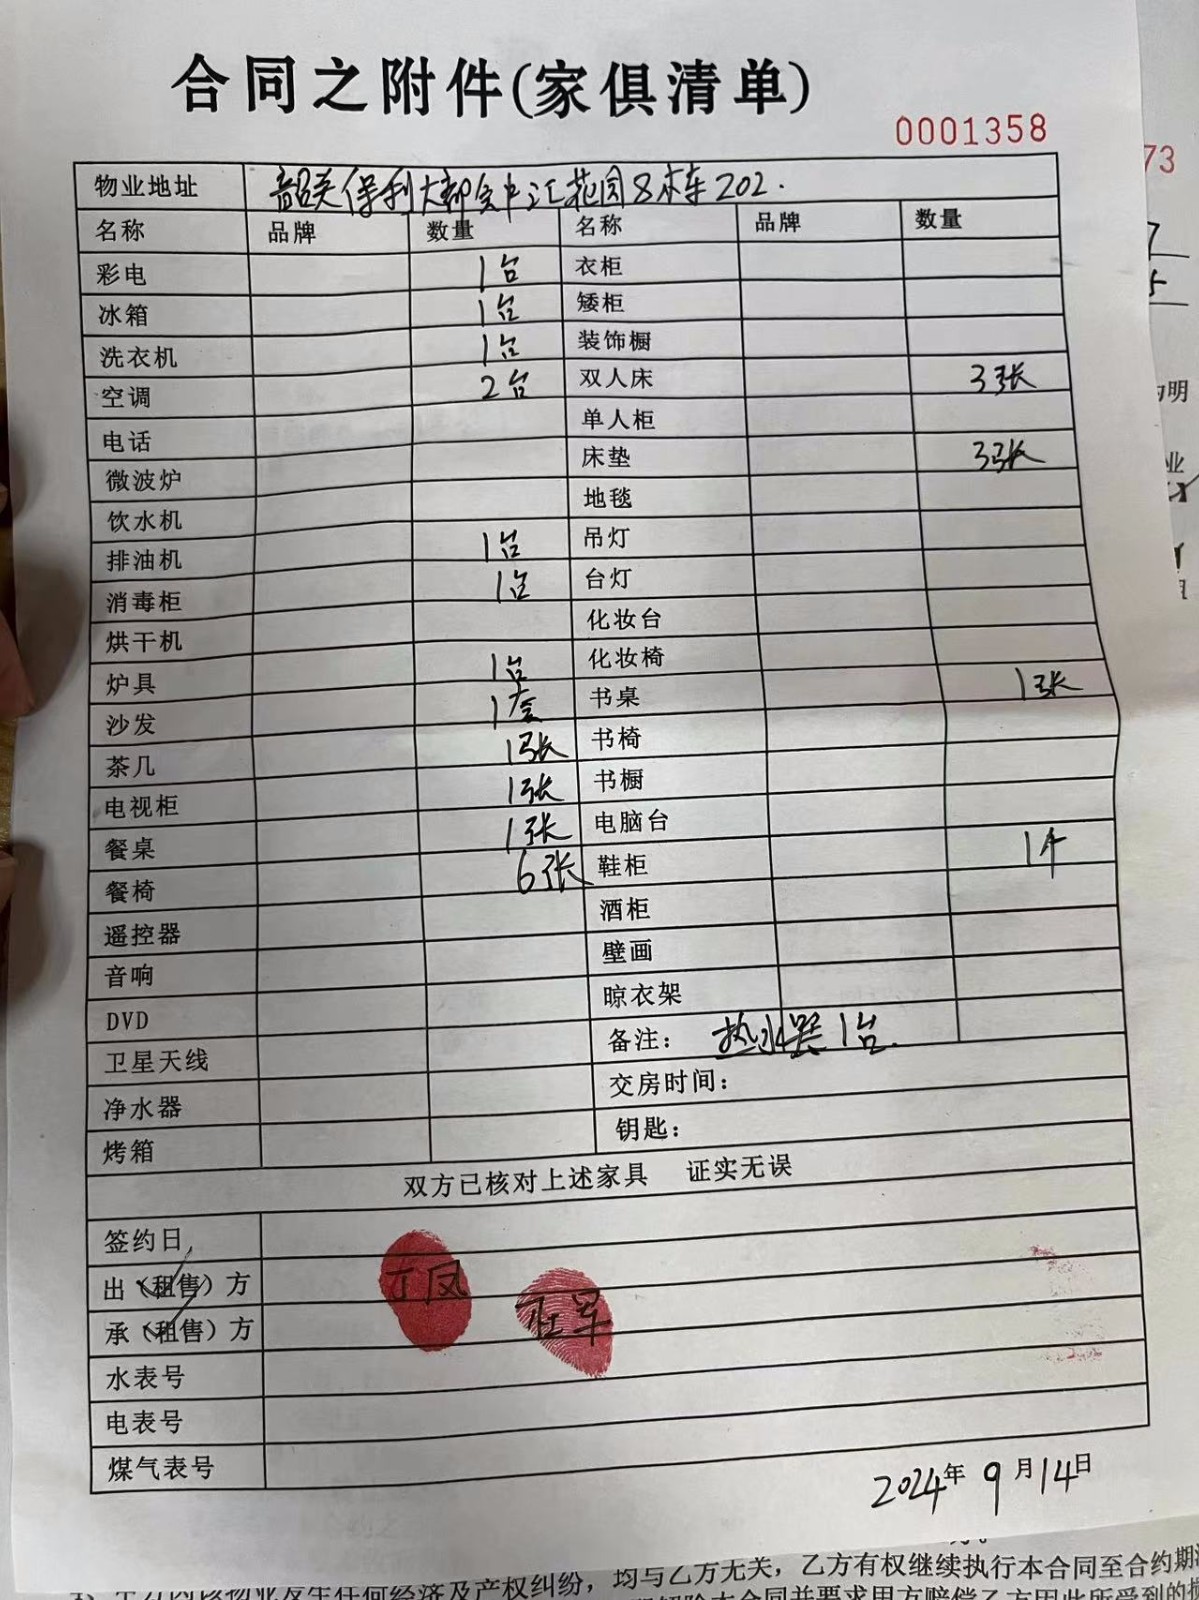 合同之附件(家俱清单)
0001358
物业地址 韶关保利大都会中汇花园8栋202.
名称 品牌 数量 名称 品牌 数量
彩电 1台 衣柜
冰箱 1台 矮柜
洗衣机 1台 装饰橱
空调 2台 双人床 3张
电话 单人柜
微波炉 床垫 3张
饮水机 地毯
排油机 1台 吊灯
消毒柜 1台 台灯
烘干机 化妆台
炉具 1台 化妆椅
沙发 1套 书桌 1张
茶几 1张 书椅
电视柜 1张 书橱
餐桌 1张 电脑台
餐椅 6张 鞋柜 1个
遥控器 酒柜
音响 壁画
DVD 晾衣架
卫星天线 备注: 热水器1台.
净水器 交房时间:
烤箱 钥匙:
双方已核对上述家具 证实无误
签约日
出(租售)方 丁凤
承(租售)方 杜军
水表号
电表号
煤气表号
2024年9月14日
73
7
5
明
业
均与乙方无关,乙方有权继续执行本合同至合约期